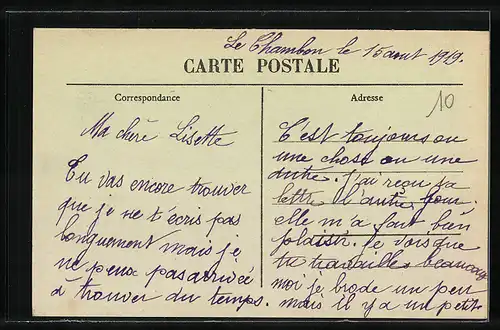 Le Chambon le 15 aout 1919.
CARTE POSTALE
Correspondance
Ma chère Lisette
Tu vas encore trouver
que je ne t'écris pas
longuement mais je
ne peux pas arrivée
à trouver du temps.
Adresse
10
C'est toujours ou
une chose ou une
autre. j'ai reçu ta
lettre l'autre jour.
elle m'a fait bien
plaisir. je vois que
tu travailles beaucoup
moi je brode un peu
mais il y a un petit